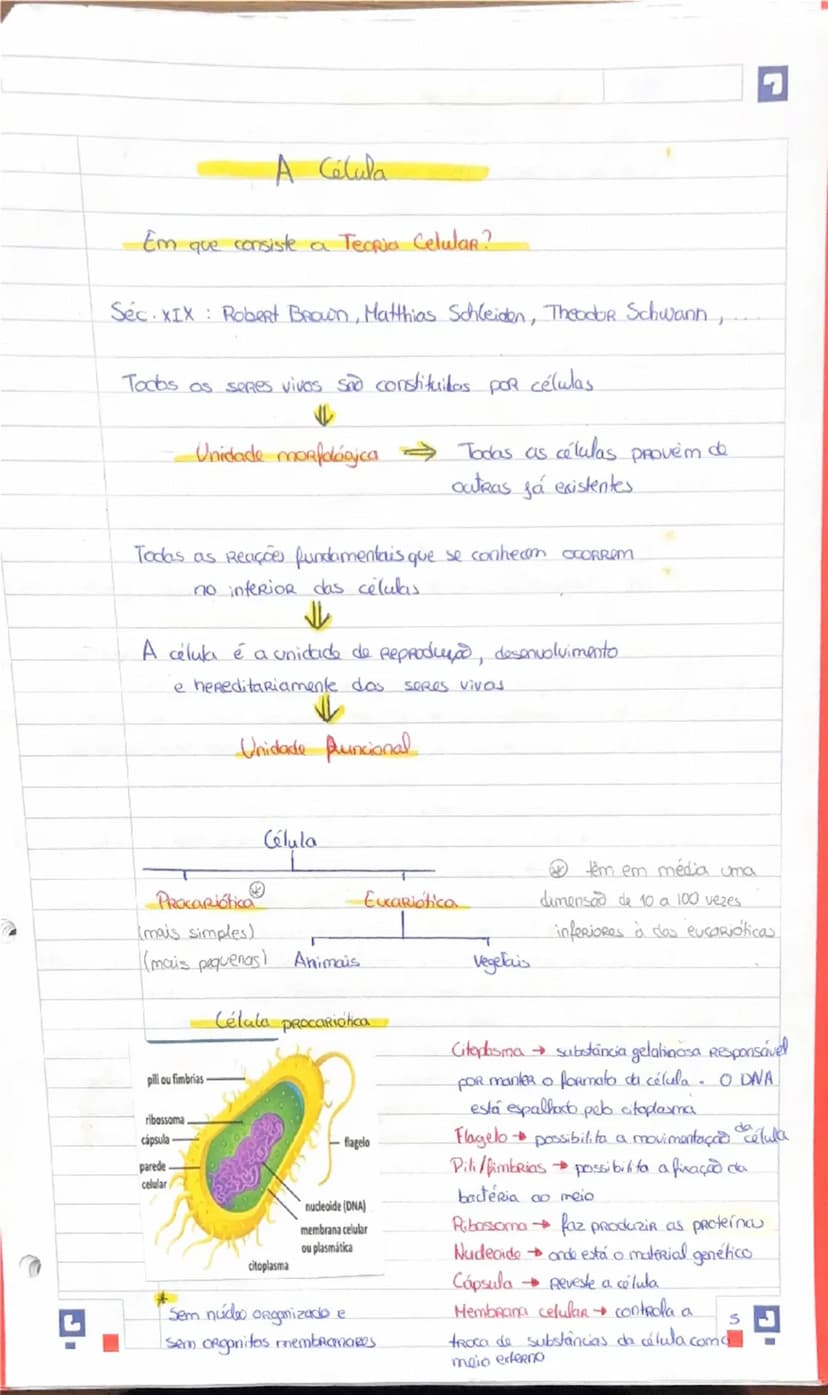 A Célula
Em que consiste a Teoria Celular?
Séc. XIX : Robert Brown, Matthias Schleiden, Theodor Schwann, ...
Todos os seres vivos são constituídos por células
⇓
Unidade morfológica ⇒ Todas as células provêm de
outras já existentes
Todas as reações fundamentais que se conhecem ocorrem
no interior das células
⇓
A célula é a unidade de reprodução, desenvolvimento
e hereditariamente dos seres vivos
⇓
Unidade funcional
Célula
Procariótica *
Eucariótica
(mais simples)
(mais pequenas)
Animais
Vegetais
* têm em média uma
dimensão de 10 a 100 vezes
inferiores à das eucarióticas
Célula procariótica
pili ou fímbrias
ribossoma
cápsula
parede
celular
flagelo
nucleoide (DNA)
membrana celular
ou plasmática
citoplasma
* Sem núcleo organizado e
sem organitos membranares
Citoplasma → substância gelatinosa responsável
por manter o formato da célula. O DNA
está espalhado pelo citoplasma
Flagelo → possibilita a movimentação da célula
Pili/fímbrias → possibilita a fixação da
bactéria ao meio
Ribossoma → faz produzir as proteínas
Nucleoide → onde está o material genético
Cápsula → Reveste a célula
Membrana celular → controla a
troca de substâncias da célula com o
meio externo
5